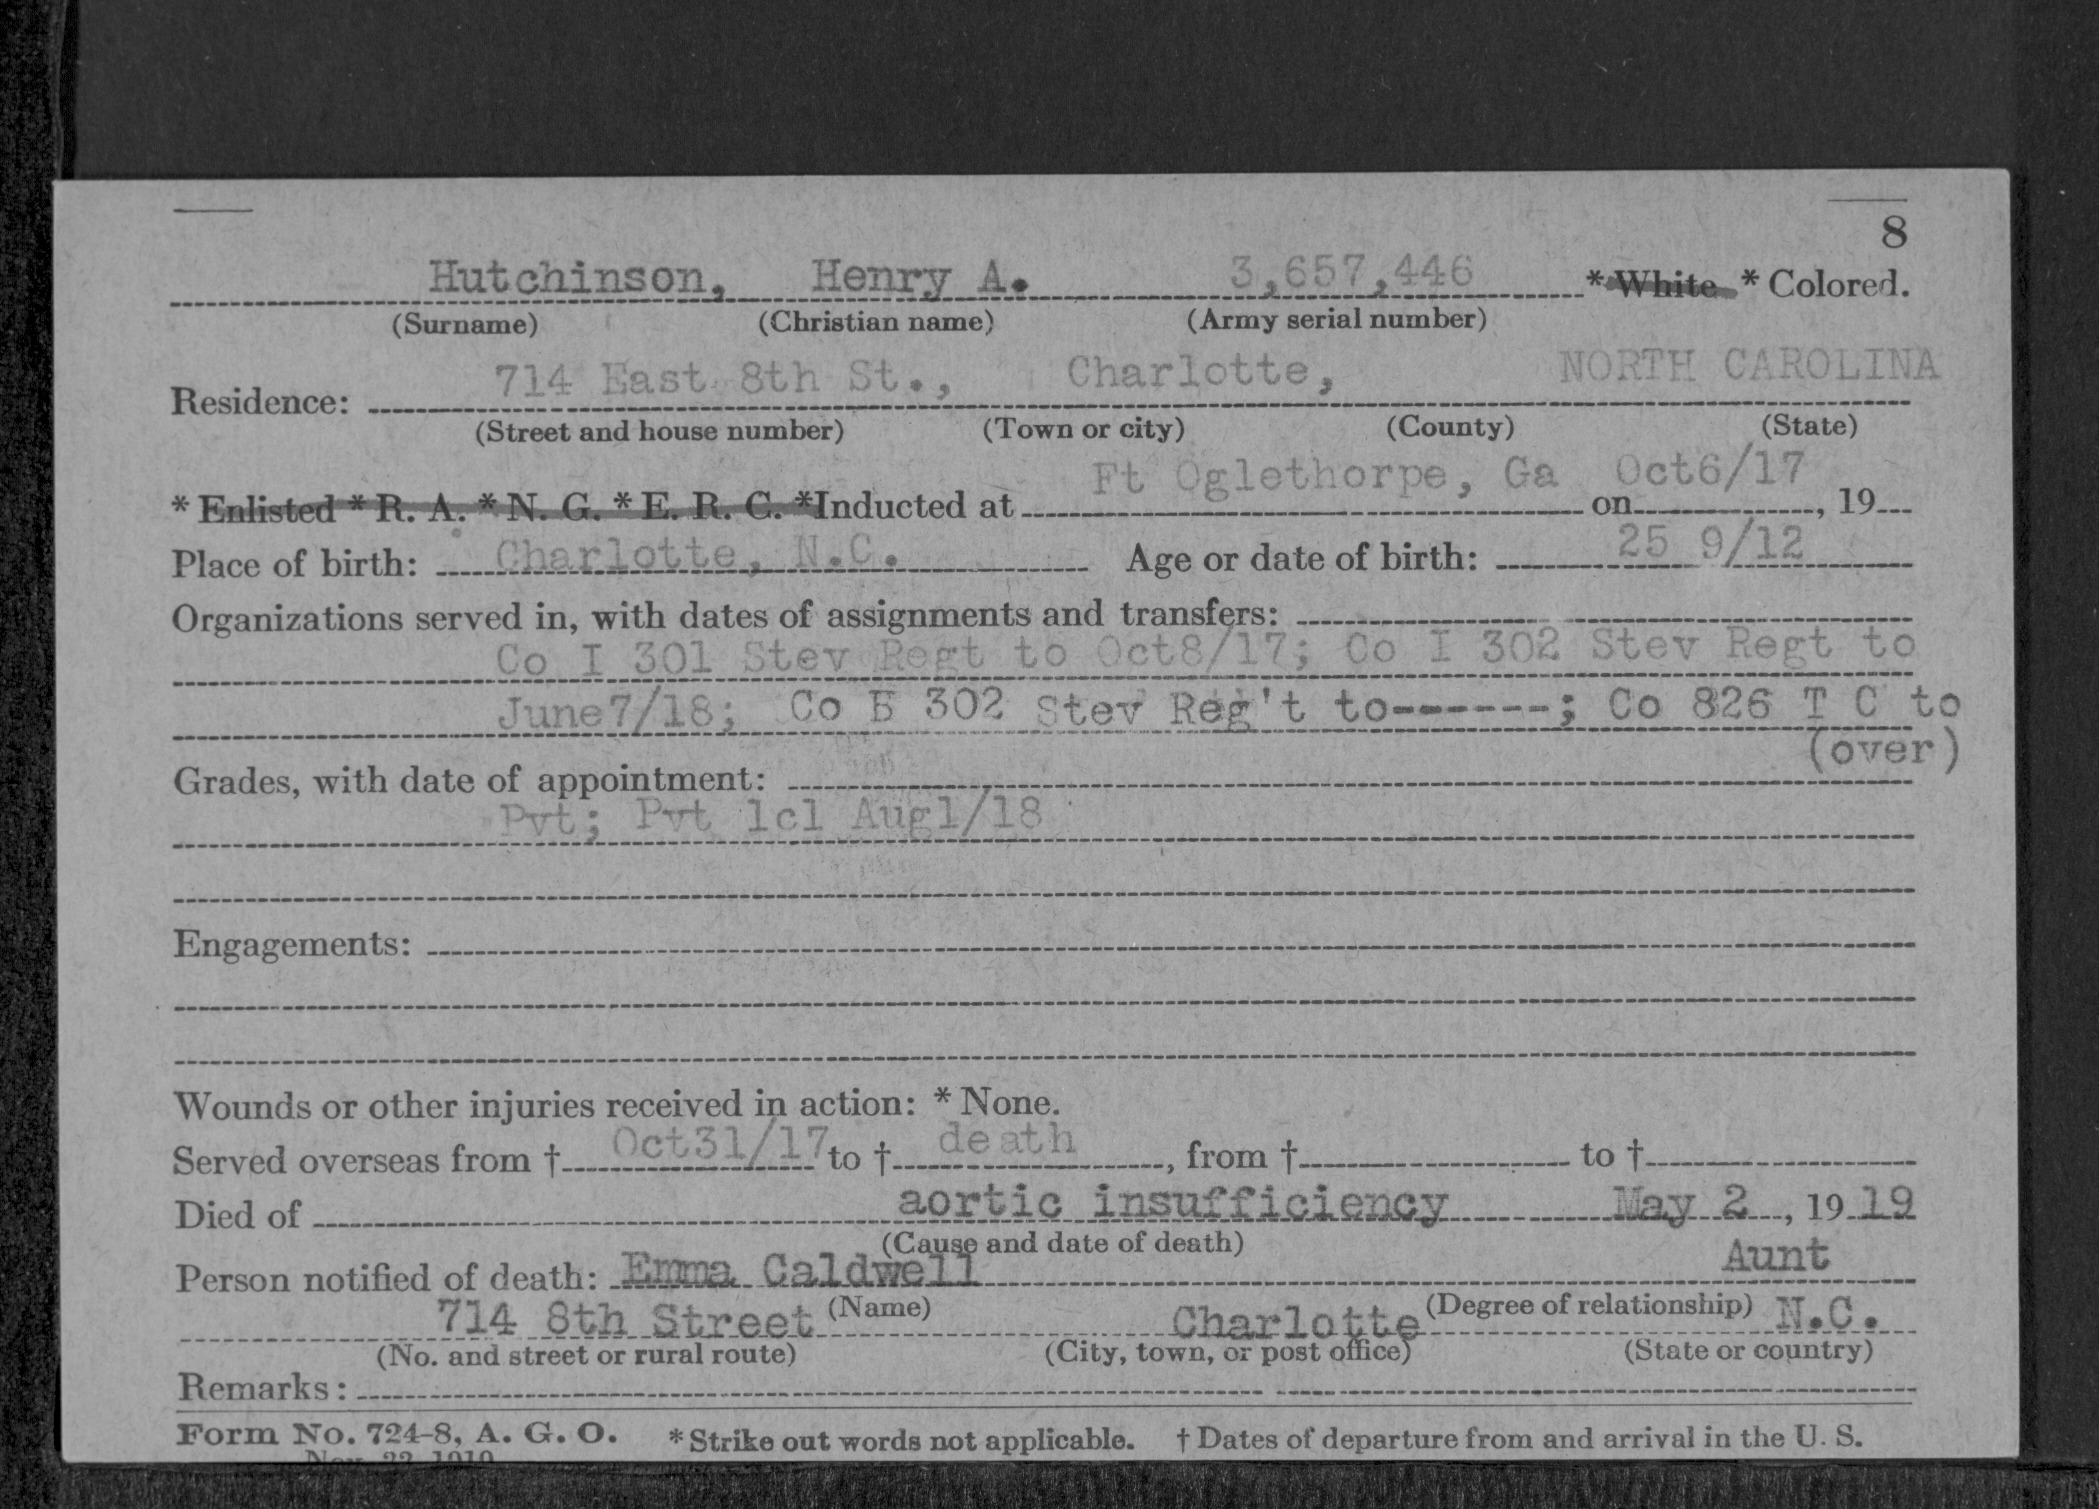 8
Hutchinson, Henry A. 3,657,446 * White * Colored.
(Surname) (Christian name) (Army serial number)
714 East 8th St., Charlotte, NORTH CAROLINA
Residence:
(Street and house number) (Town or city) (County) (State)
Ft Oglethorpe, Ga Oct6/17
* Enlisted * R. A. * N. G. * E. R. C. *Inducted at on , 19
Place of birth: Charlotte, N.C. Age or date of birth: 25 9/12
Organizations served in, with dates of assignments and transfers:
Co I 301 Stev Regt to Oct8/17; Co I 302 Stev Regt to
June7/18; Co E 302 Stev Reg't to-------; Co 826 T C to
(over)
Grades, with date of appointment:
Pvt; Pvt 1cl Aug1/18
Engagements:
Wounds or other injuries received in action: * None.
Served overseas from † Oct31/17 to † death , from † to †
Died of aortic insufficiency May 2 , 19 19
(Cause and date of death)
Person notified of death: Emma Caldwell Aunt
(Name) (Degree of relationship)
714 8th Street Charlotte N.C.
(No. and street or rural route) (City, town, or post office) (State or country)
Remarks:
Form No. 724-8, A. G. O. * Strike out words not applicable. † Dates of departure from and arrival in the U. S.